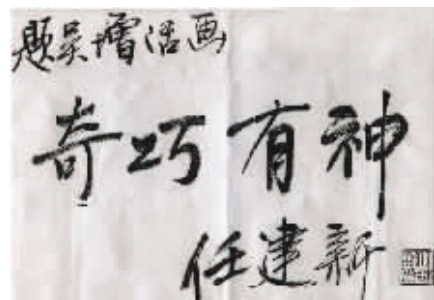 题吴增活画
奇巧有神
任建新